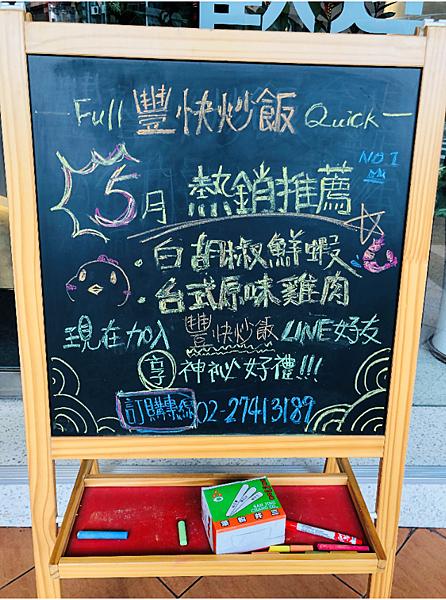 Full 豐快炒飯 Quick
NO 1
5月 熱銷推薦
·白胡椒鮮蝦
·台式原味雞肉
現在加入 豐快炒飯 LINE好友
享 神祕好禮!!!
訂購專線 02-27413189